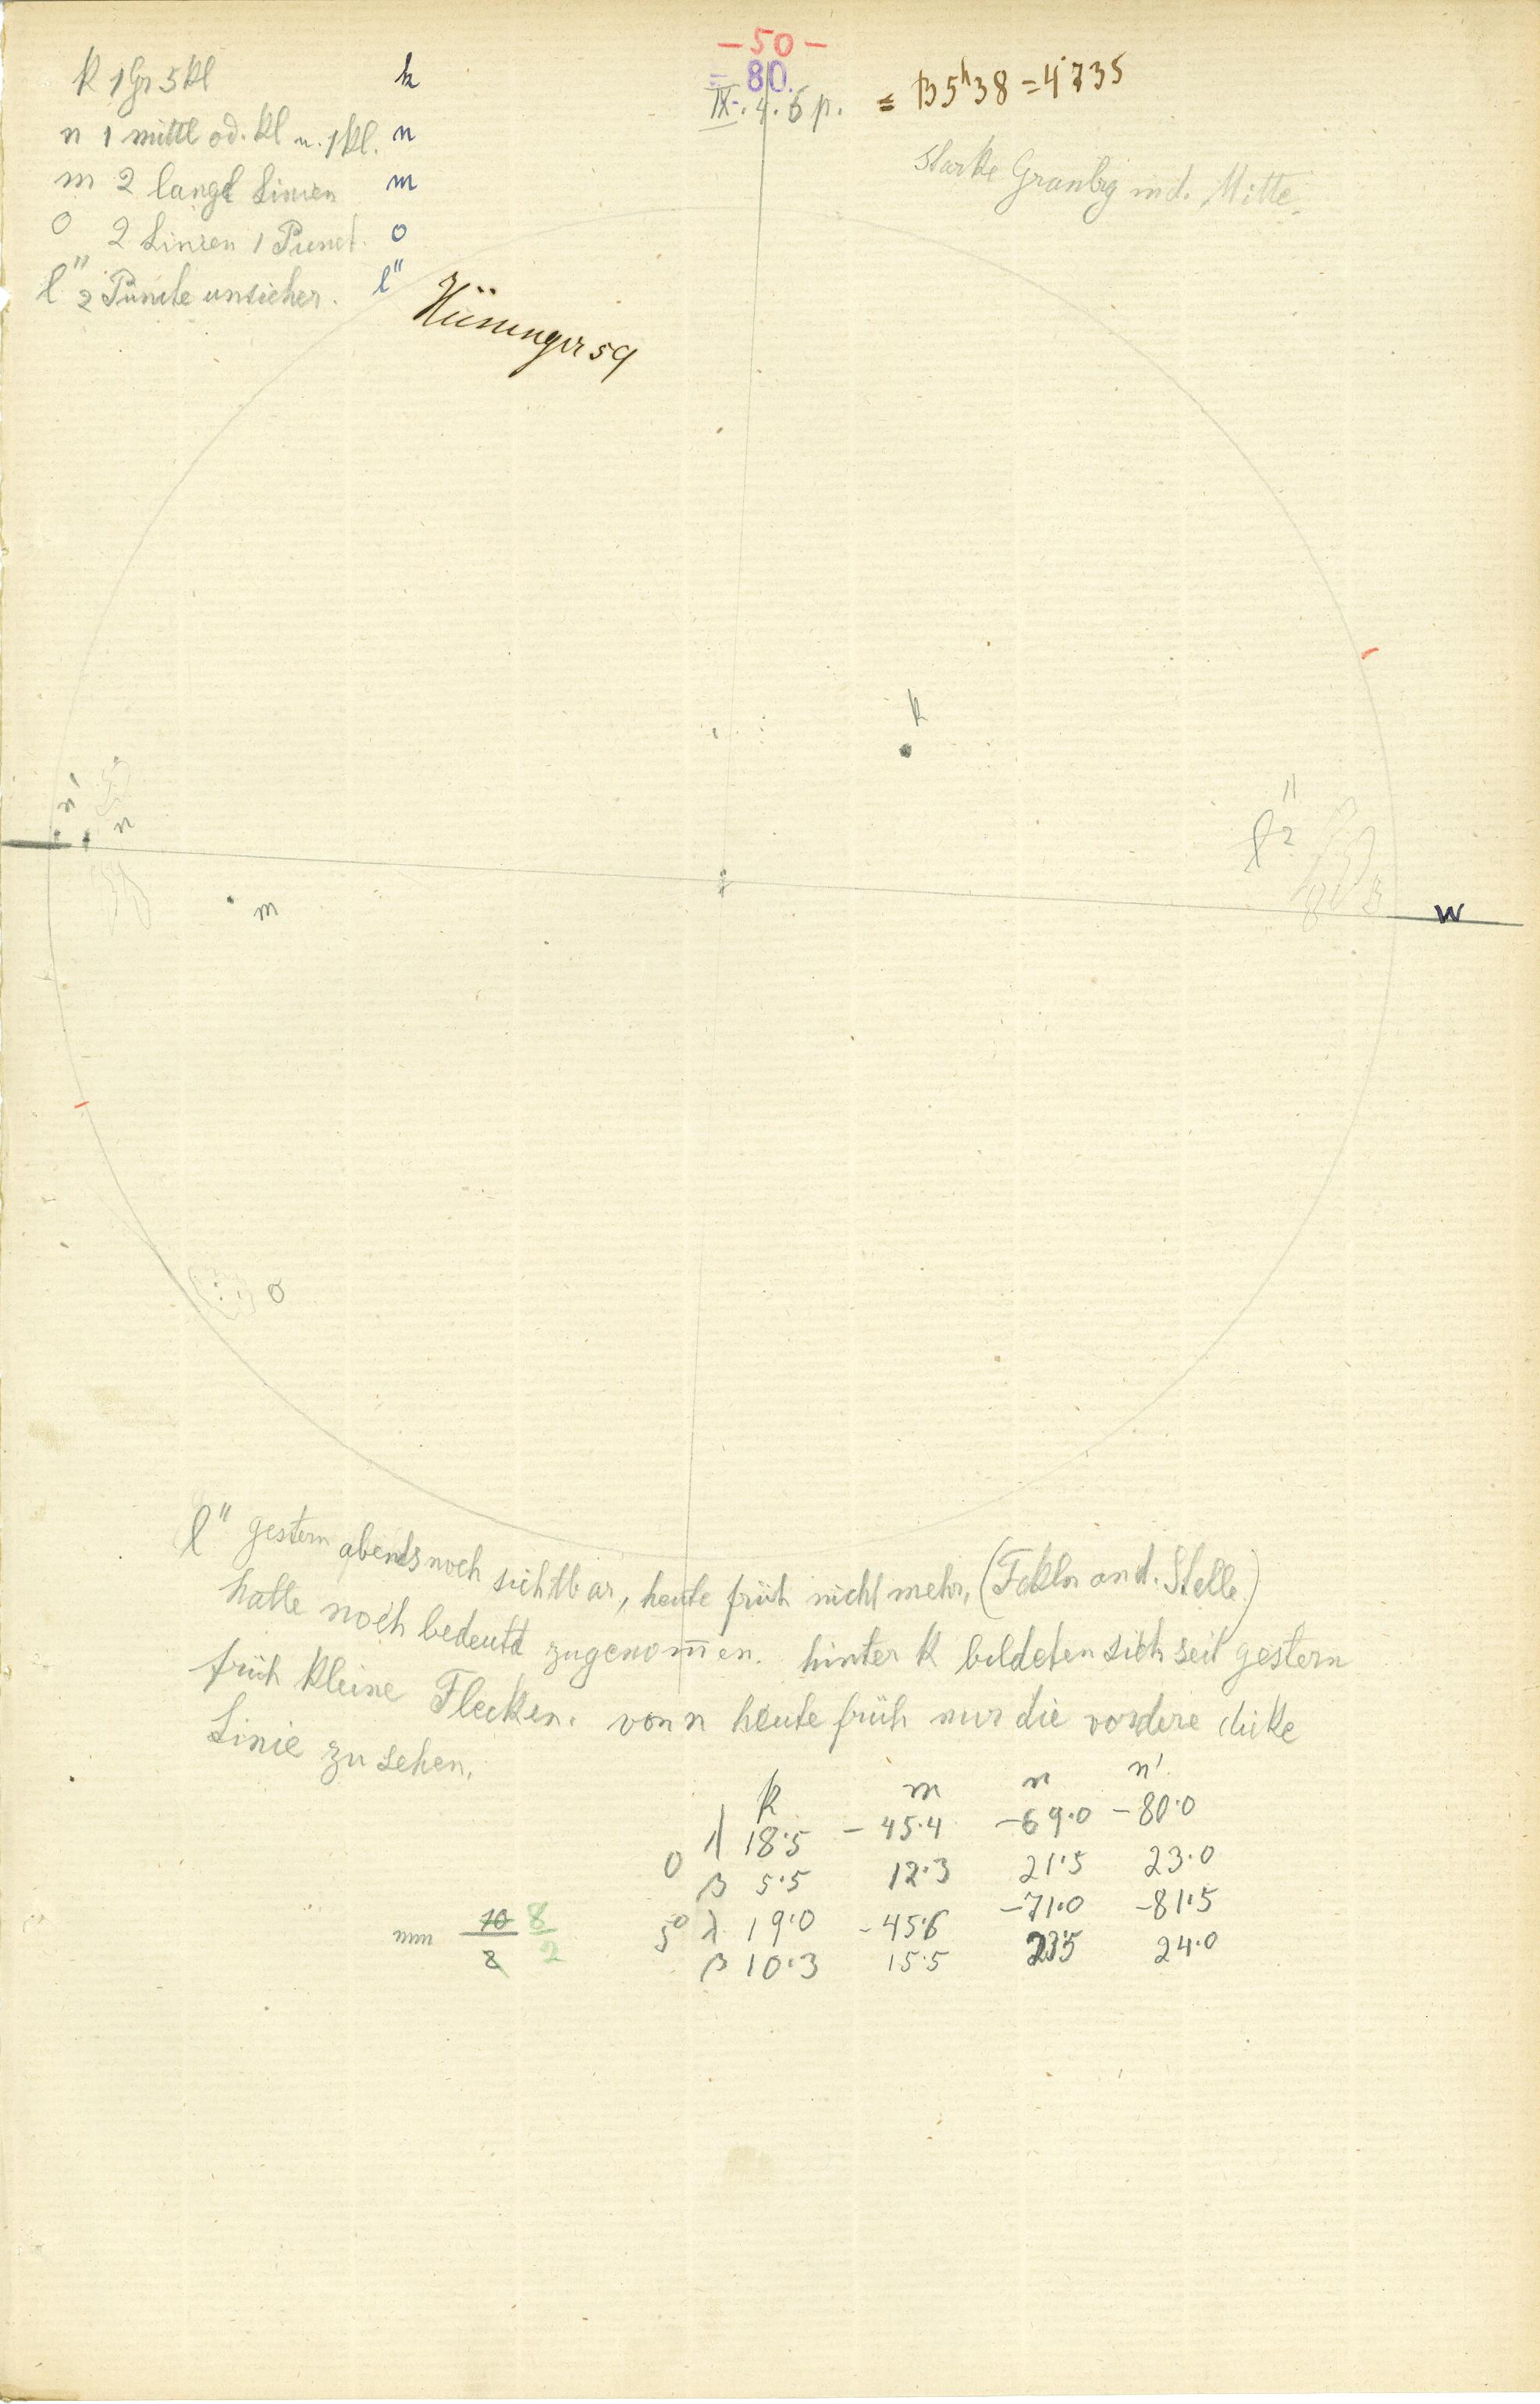 – 50 –
= 80.
IX. 4. 5 p. = B 5h38 = 4.735
k 1 Gr 5 kl k
n 1 mittl od. kl u. 1 kl. n
m 2 lange Linien m
o 2 Linien 1 Punct. o
l" 2 Puncte unsicher. l"
starke in d. Mitte.
59
k
n'
n
l"
2
m
W
o
l" gestern abends noch sichtbar, heute früh nicht mehr, (Fakln an d. Stelle)
hatte noch bedeutd zugenom̅en. hinter k bildeten sich seit gestern
früh kleine Flecken. von n heute früh nur die vordere dicke
Linie zu sehen.
k m n n'
0 λ 18.5 – 45.4 – 69.0 – 80.0
β 5.5 12.3 21.5 23.0
5° λ 19.0 – 45.6 – 71.0 – 81.5
β 10.3 15.5 23.5 24.0
10 8
2 2